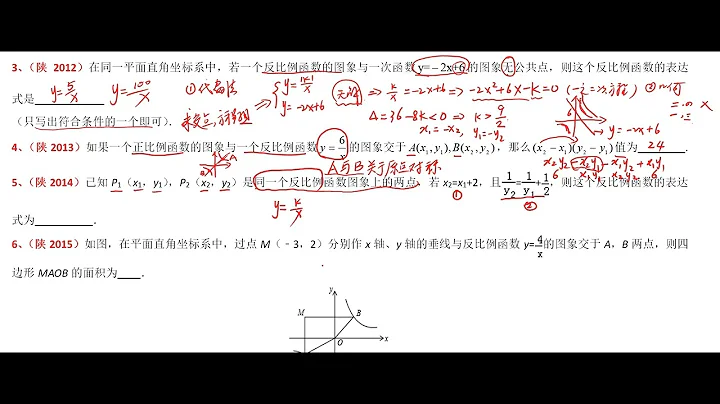 3、（陕 2012）在同一平面直角坐标系中，若一个反比例函数的图象与一次函数 y=－2x+6 的图象无公共点，则这个反比例函数的表达
式是 y=5/x y=100/x ①代数法
（只写出符合条件的一个即可）. 求交点，方程组 ⇒ { y=k/x y=-2x+6 无解 ⇒ k/x=-2x+6 ⇒ -2x²+6x-k=0 (一元二次方程) ②几何
Δ=36-8k<0 ⇒ k>9/2
x₁=-x₂, y₁=-y₂
y=-2x+6
4、（陕 2013）如果一个正比例函数的图象与一个反比例函数 y=6/x 的图象交于 A(x₁,y₁),B(x₂,y₂)，那么(x₂－x₁)(y₂－y₁)值为 24 .
A与B关于原点对称
x₂y₂-x₂y₁-x₁y₂+x₁y₁
5、（陕 2014）已知 P₁（x₁，y₁），P₂（x₂，y₂）是同一个反比例函数图象上的两点，若 x₂=x₁+2，且 1/y₂=1/y₁+1/2，则这个反比例函数的表达
式为 . y=k/x ① ②
6、（陕 2015）如图，在平面直角坐标系中，过点 M（－3，2）分别作 x 轴、y 轴的垂线与反比例函数 y=4/x 的图象交于 A，B 两点，则四
边形 MAOB 的面积为 .
y
M B
O x